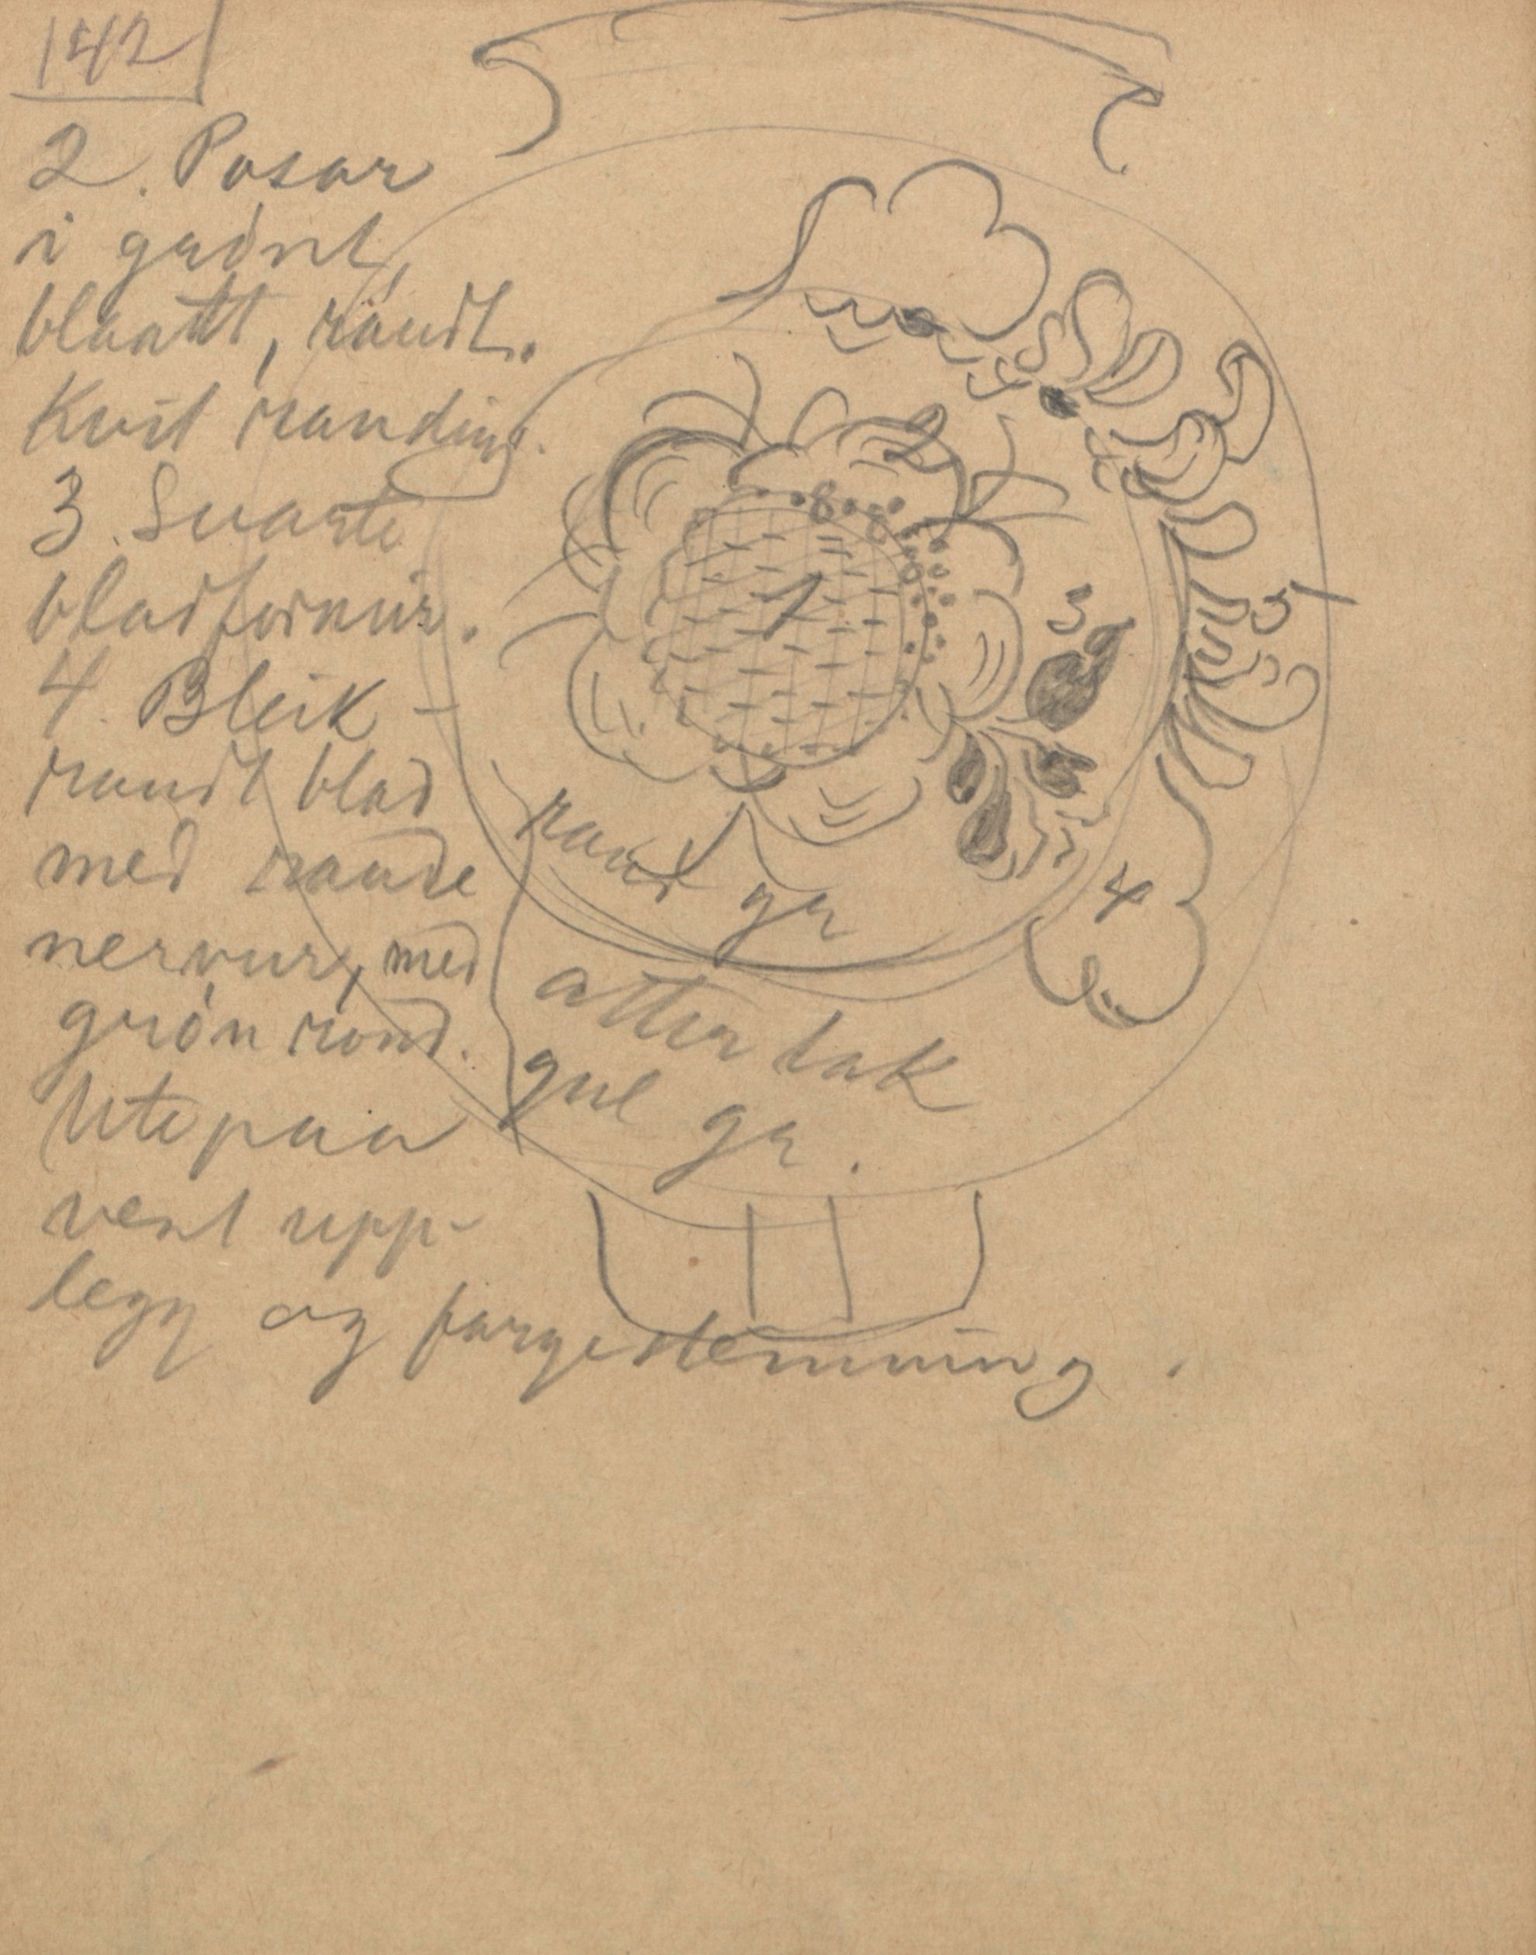 142
2. Posar
i grönt,
blaatt, raudt.
Kvit randing.
3. Svarte
bladformir.
4. Bleik-
raudt blad
med raude
nervur, med
grön rond.
Utepaa
vent upp-
legg og fargestemning.
1
2
3
4
5
raud gr
atter lak
gul gr.